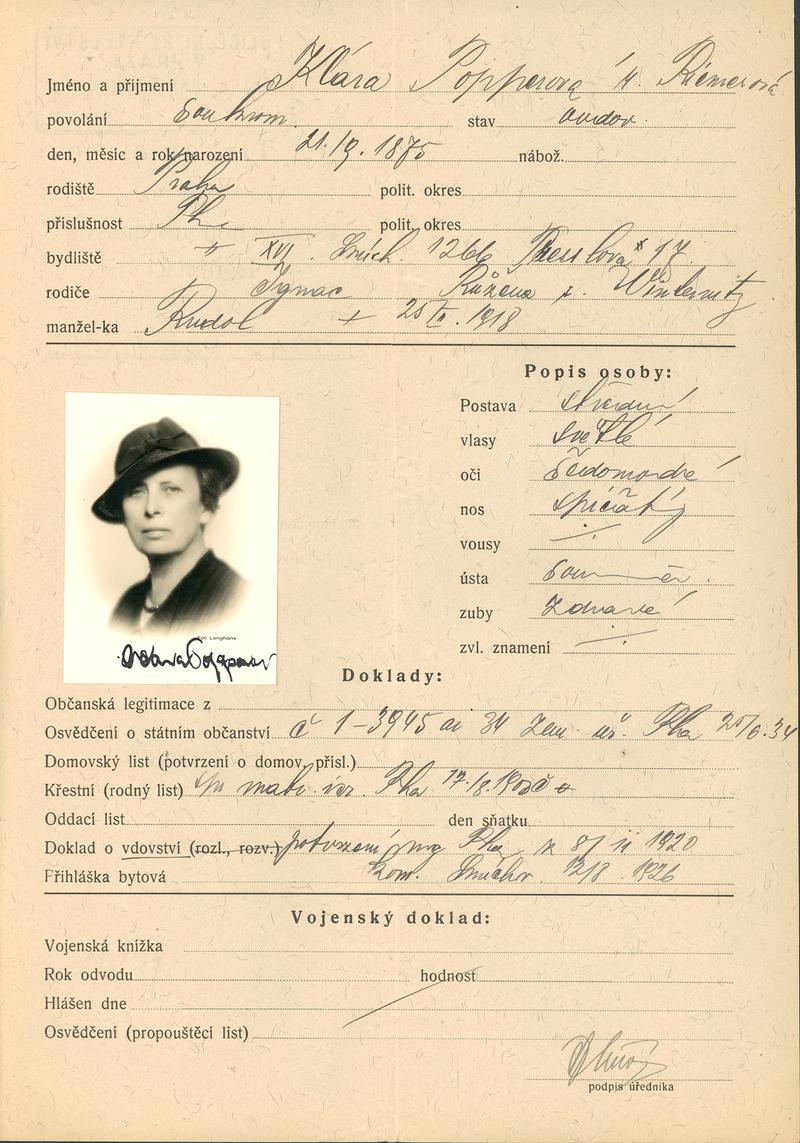 Jméno a příjmení Klára Popperová
povolání soukrom. stav ovdov.
den, měsíc a rok narození 21./9. 1875 nábož.
rodiště Praha polit. okres
příslušnost Pha polit. okres
bydliště XVI. Smích. 1266 17
rodiče Ignac Růžena r. Winternitz
manžel-ka Rudol + 1918
Popis osoby:
Postava střední
vlasy světlé
oči šedomodré
nos špičatý
vousy ./.
ústa soum-ěr.
zuby zdravé
zvl. znamení ./.
Fot. Langhans
Doklady:
Občanská legitimace z
Osvědčení o státním občanství č 1-3945 ai 34 Zem. úř. Pha 34
Domovský list (potvrzení o domov. přísl.)
Křestní (rodný list) matr. isr. Pha 17./8.
Oddací list den sňatku
Doklad o vdovství (rozl., rozv.) potvrzení mag Pha z 8/ii 1920
Přihláška bytová kom. Smíchov. 12/8. 1926
Vojenský doklad:
Vojenská knížka
Rok odvodu hodnost
Hlášen dne
Osvědčení (propouštěcí list)
podpis úředníka